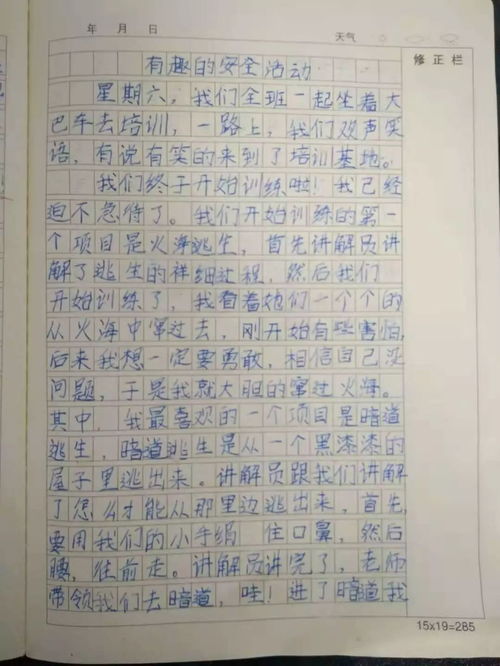 年 月 日 天气
修正栏
有趣的安全活动
星期六，我们全班一起坐着大
巴车去培训，一路上，我们观声笑
语，有说有笑的来到了培训基地。
我们终于开始训练啦！我已经
迫不急待了。我们开始训练的第一
个项目是火海逃生，首先讲解员讲
解了逃生的祥细过程，然后我们
开始训练了，我看着她们一个个的
从火海中窜过去，刚开始有些害怕，
后来我想一定要勇敢，相信自己没
问题，于是我就大胆的窜过火海。
其中，我最喜欢的一个项目是暗道
逃生，暗道逃生是从一个黑漆漆的
屋子里逃出来。讲解员跟我们讲解
了怎么才能从那里边逃出来，首先，
要用我们的小手绢 住口鼻，然后
腰，往前走。讲解员讲完了，老师
带领我们去暗道，哇！进了暗道我
15x19=285